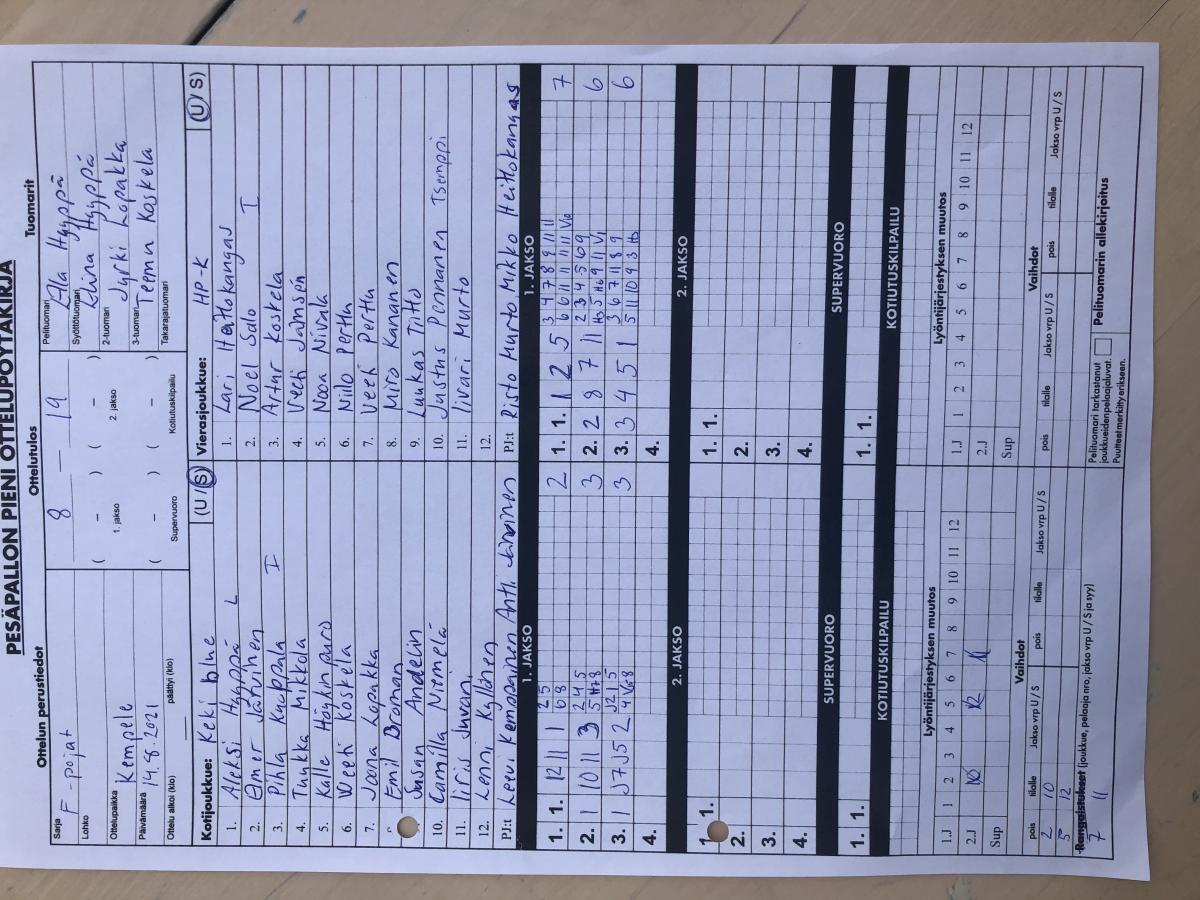 PESÄPALLON PIENI OTTELUPÖYTÄKIRJA
Ottelun perustiedot Ottelutulos Tuomarit
Sarja F-pojat
Lohko
Ottelupaikka Kempele
Päivämäärä 14.8.2021
Ottelu alkoi (klo) päättyi (klo)
8 – 19
( – ) ( – )
1. jakso 2. jakso
( – ) ( – )
Supervuoro Kotiutuskilpailu
Pelituomari Ella Hyyppä
Syöttötuomari Elina Hyyppä
2-tuomari Jyrki Lopakka
3-tuomari Teemu Koskela
Takarajatuomari
Kotijoukkue: Keki blue (U / S)
1. Aleksi Hyyppä L
2. Elmer Järvinen
3. Pihla Kuoppala I
4. Tuukka Mikkola
5. Kalle Höykinpuro
6. Veeti Koskela
7. Joona Lopakka
8. Emil Broman
9. Susan Andelin
10. Camilla Niemelä
11. Iiris Juvani
12. Lenni Kyllönen
PJ:t Levi Kemppainen Antti Järvinen
Vierasjoukkue: HP-K (U / S)
1. Lari Heitokangas
2. Noel Salo I
3. Artur Koskela
4. Veeti Jämsén
5. Nooa Nivala
6. Niilo Perttu
7. Veeti Perttu
8. Miro Kananen
9. Luukas Titto
10. Justus Pennanen Tsemppi
11. Iivari Murto
12.
PJ:t Risto Murto Mikko Heitokangas
1. JAKSO 1. JAKSO
1. 1. 12 11 1 2 5 2
6 8
2. 1 10 11 3 2 4 5 3
5 H7 8
3. 1 J7 J5 2 J2 1 5 3
4.
1. 1. 1 2 5 3 4 7 8 9 11 11 7
6 6 11 11 11 11 V10
2. 2 8 7 11 2 3 4 5 6 9 6
H3 5 H6 9 11 V1
3. 3 4 5 1 3 6 7 11 8 9 6
5 11 10 9 3 H3
4.
2. JAKSO 2. JAKSO
1. 1.
2.
3.
4.
1. 1.
2.
3.
4.
SUPERVUORO SUPERVUORO
1. 1. 1. 1.
KOTIUTUSKILPAILU KOTIUTUSKILPAILU
Lyöntijärjestyksen muutos
1.J 1 2 3 4 5 6 7 8 9 10 11 12
2.J 10 12 11
Sup
Vaihdot
pois tilalle Jakso vrp U / S pois tilalle Jakso vrp U / S
2 10
5 12
7 11
Rangaistukset (joukkue, pelaaja nro, jakso vrp U / S ja syy)
Lyöntijärjestyksen muutos
1.J 1 2 3 4 5 6 7 8 9 10 11 12
2.J
Sup
Vaihdot
pois tilalle Jakso vrp U / S pois tilalle Jakso vrp U / S
Pelituomari tarkastanut
joukkueidenpelaajaluvat.
Puutteetmerkittyerikseen.
Pelituomarin allekirjoitus